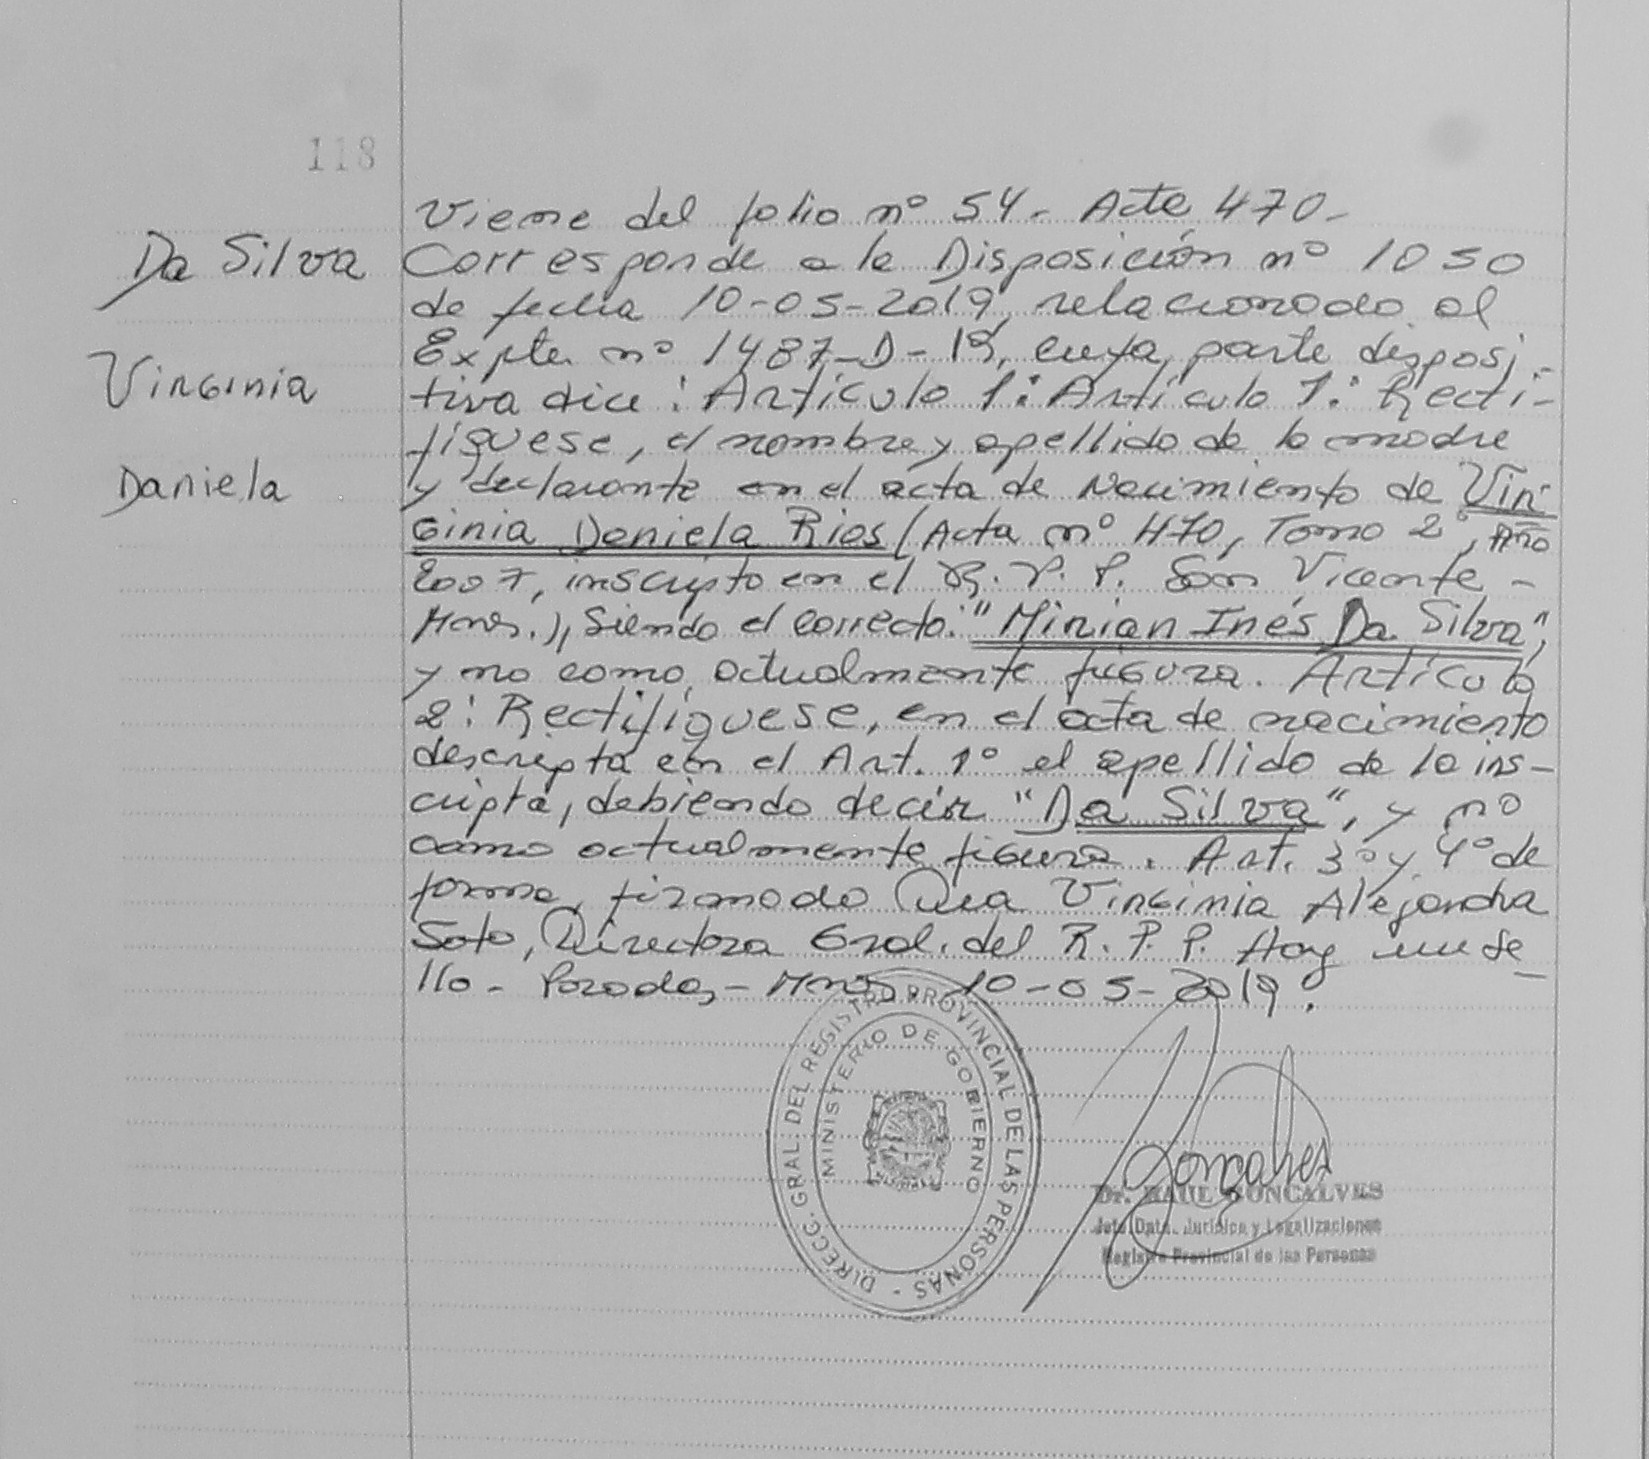 118
Da Silva
Virginia
Daniela
Viene del folio nº 54 - Acta 470 -
Corresponde a la Disposición nº 1050
de fecha 10-05-2019, relacionado al
Expte. nº 1487-D-19, cuya parte disposi-
tiva dice: Artículo 1: Artículo 1: Recti-
fíquese, el nombre y apellido de la madre
y declarante en el acta de Nacimiento de Vir-
ginia Daniela Rios (Acta nº 470, Tomo 2º, Año
2007, inscripto en el R. P. P. San Vicente -
Mnes.), Siendo el correcto: "Mirian Inés Da Silva",
y no como actualmente figura. Artículo
2: Rectifíquese, en el acta de nacimiento
descripta en el Art. 1º el apellido de la ins-
cripta, debiendo decir "Da Silva", y no
como actualmente figura. Art. 3º y 4º de
forma, firmado Virginia Alejandra
Soto, Directora Gral. del R. P. P. Hay un se-
llo - Posadas, - Mnes. 10-05-2019.
DIRECC. GRAL. DEL REGISTRO PROVINCIAL DE LAS PERSONAS -
MINISTERIO DE GOBIERNO
Goncalves
Dr. RAUL GONCALVES
Jefe Dpto. Jurídico y Legalizaciones
Registro Provincial de las Personas